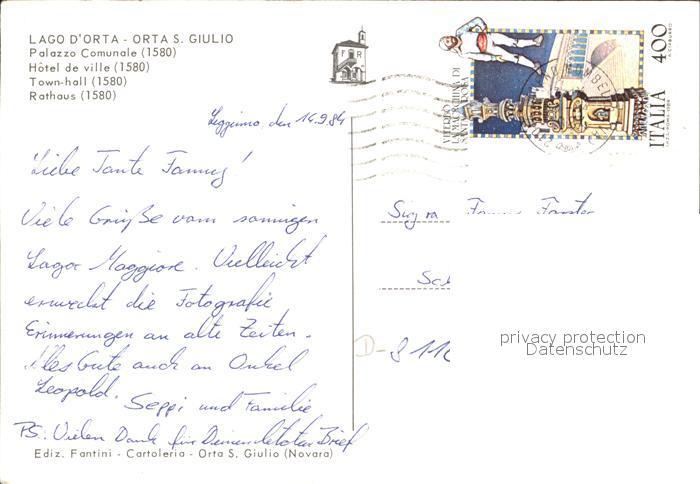 LAGO D'ORTA - ORTA S. GIULIO
Palazzo Comunale (1580)
Hôtel de ville (1580)
Town-hall (1580)
Rathaus (1580)
F R
VITERBO
LA MACCHINA DI
SANTA ROSA
ITALIA 400
den 16.9.84
Liebe Tante Fanny!
Viele Grüße vom sonnigen
Lago Maggiore. Vielleicht
erweckt die Fotografie
Erinnerungen an alte Zeiten.
Alles Gute auch an Onkel
Leopold. Seppi und Familie
PS. Vielen Dank für Deinen letzten Brief
Ediz. Fantini - Cartoleria - Orta S. Giulio (Novara)
Sig.ra
D-8110
privacy protection
Datenschutz